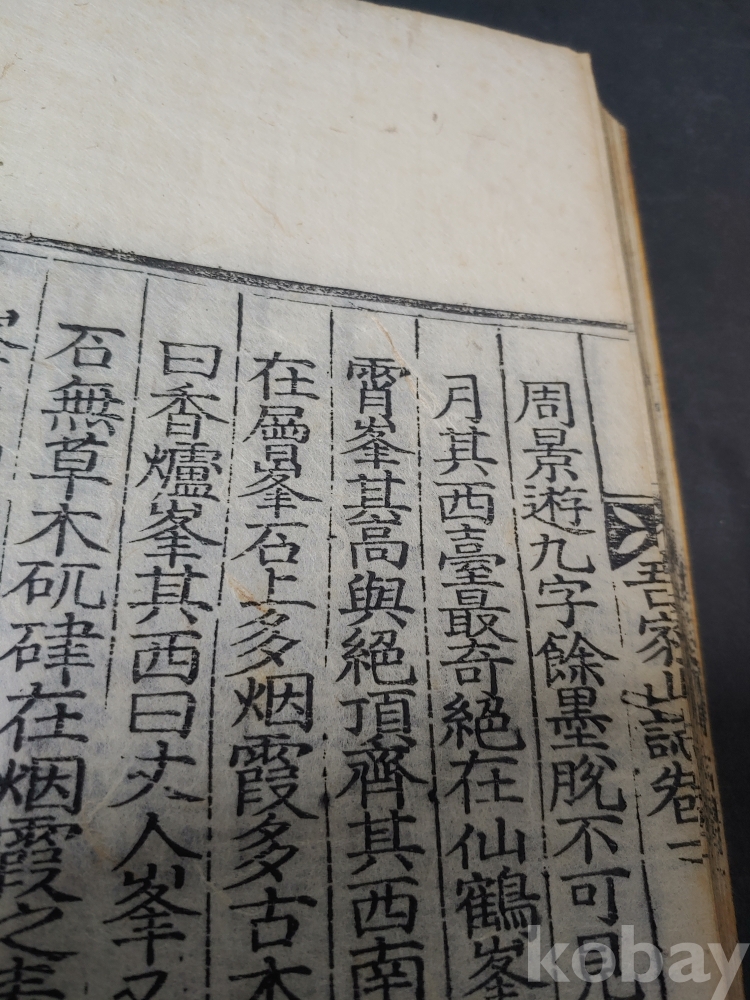 吾家山誌卷一
周景遊九字餘墨脫不可見
月其西臺最奇絕在仙鶴峯
霄峯其高與絕頂齊其西南
在層峯石上多烟霞多古木
曰香爐峯其西曰丈人峯又
石無草木矹硉在烟霞之